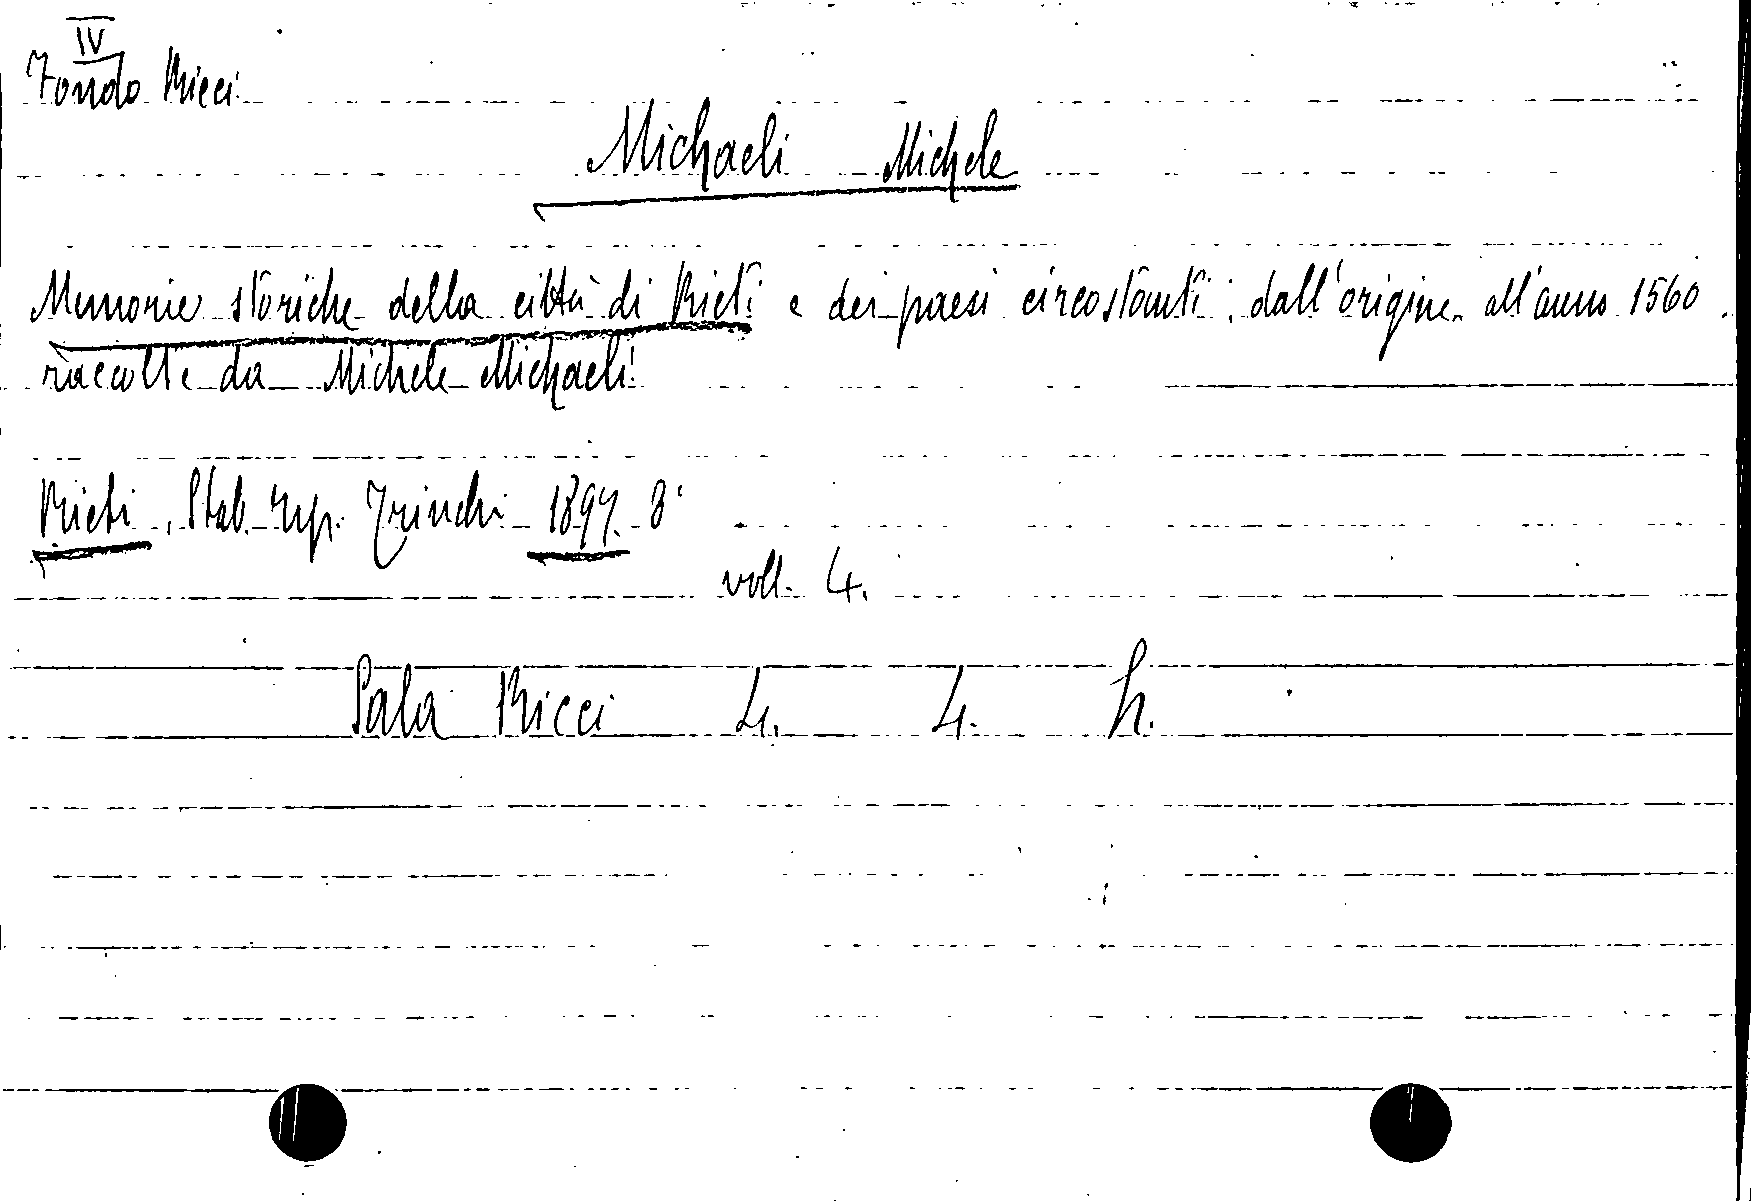 IV
Fondo Ricci
Michaeli Michele
Memorie storiche della città di Rieti e dei paesi circostanti; dall'origine all'anno 1560
raccolte da Michele Michaeli
Rieti, Stab. Tip. Trinchi 1897. 8°
voll. 4.
Sala Ricci 4. 4. h.